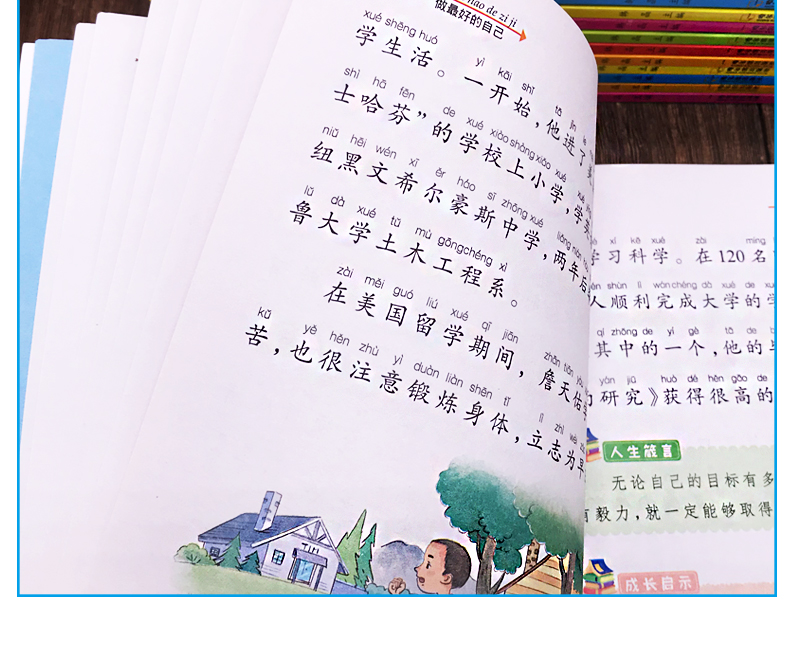 hǎo de zì jǐ
做最好的自己
xué shēng huó yì kāi shǐ tā jìn
学生活。一开始，他进了
shì hā fēn de xué xiào shàng xiǎo xué xué
士哈芬”的学校上小学，学
niǔ hēi wén xī ěr háo sī zhōng xué liǎng nián
纽黑文希尔豪斯中学，两年后
lǔ dà xué tǔ mù gōng chéng xì
鲁大学土木工程系。
zài měi guó liú xué qī jiān zhān tiān yòu
在美国留学期间，詹天佑
kǔ yě hěn zhù yì duàn liàn shēn tǐ lì zhì wèi
苦，也很注意锻炼身体，立志为
TIM
xí kē xué zài míng
学习科学。在120名
shùn lì wán chéng dà xué de
人顺利完成大学的
qí zhōng de yí gè tā de
其中的一个，他的
yán jiū huò dé hěn gāo de
研究》获得很高的
人生箴言
无论自己的目标有多
毅力，就一定能够取得
成长启示